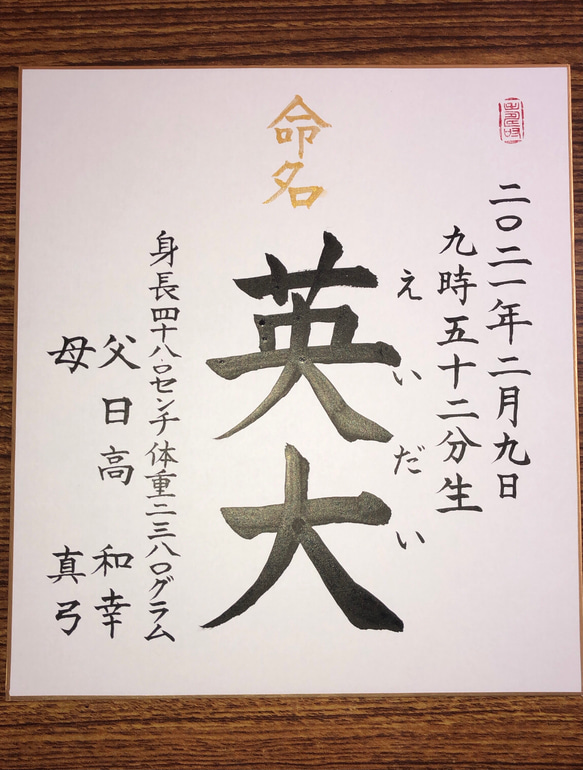 二〇二一年二月九日
九時五十二分生
命名
英大
えいだい
身長四十八.〇センチ 体重二三八〇グラム
父 日高 和幸
母 真弓